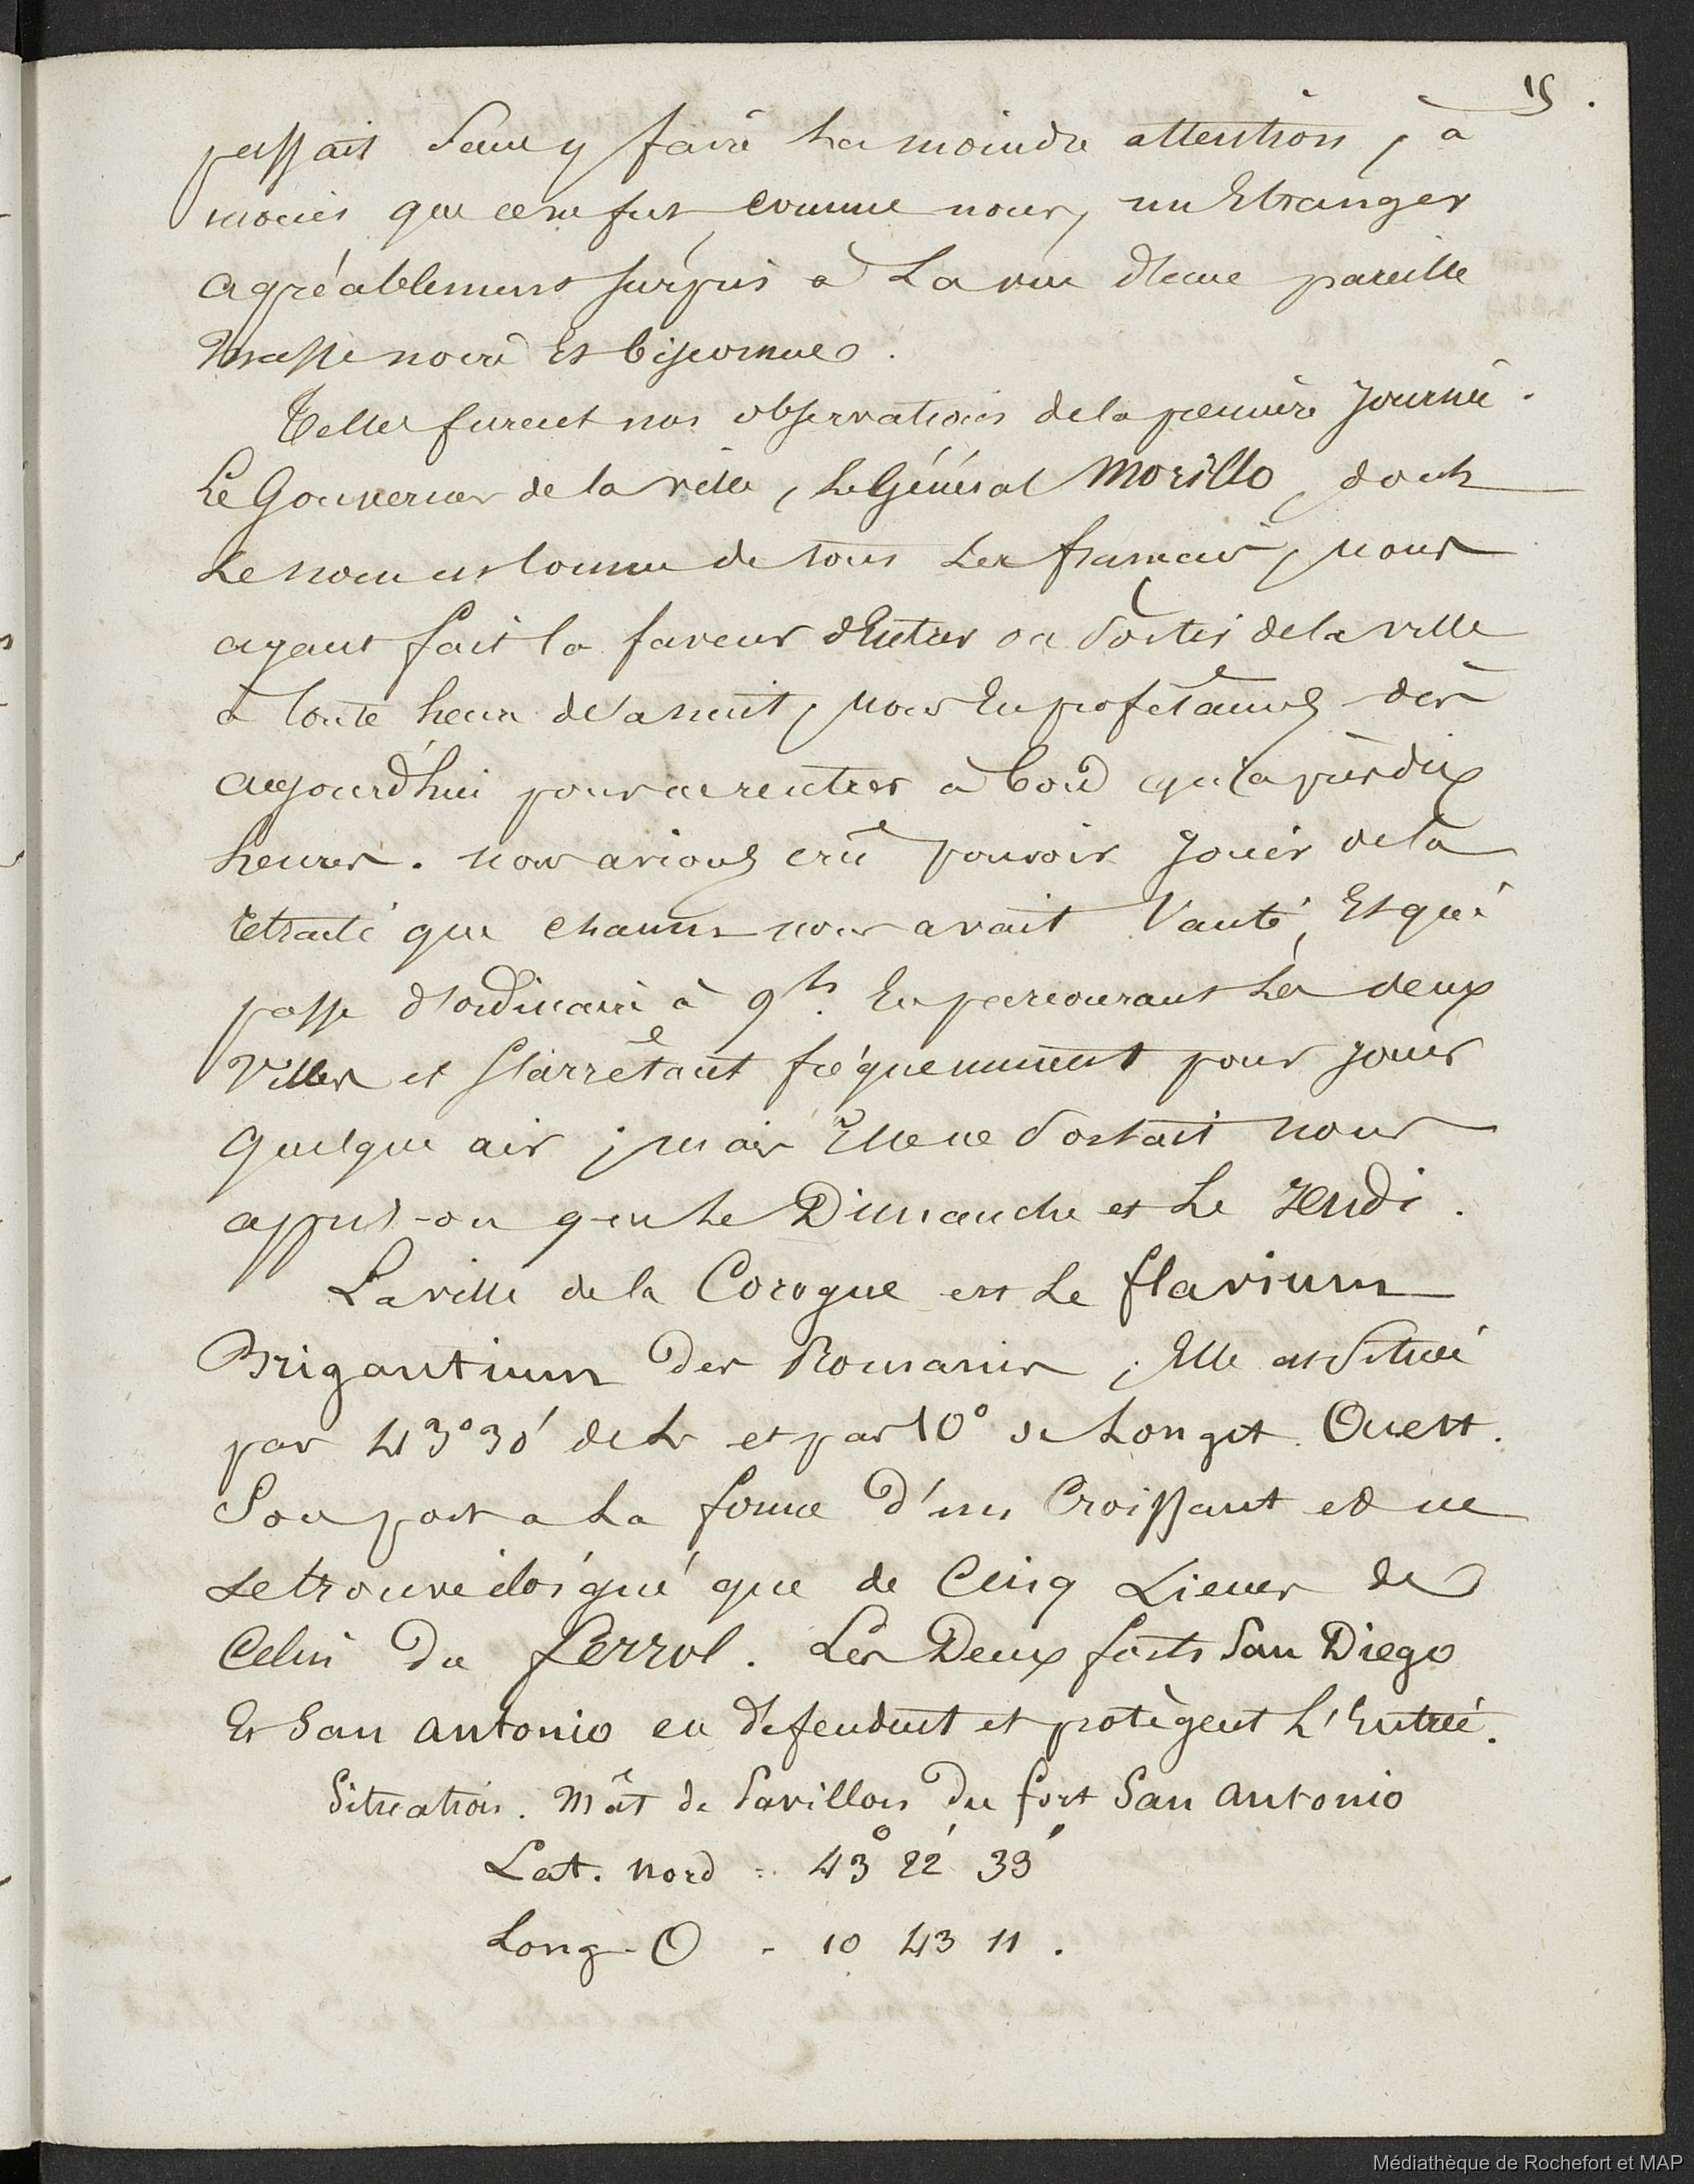 15.
passait sans y faire la moindre attention, à
moins que ce ne fut, comme nous, un Etranger
agréablement surpris à La vue d'une pareille
masse noire Et biscornue.
Telles furent nos observations de la première Journée.
Le Gouverneur de la ville, le Général Morillo, dont
Le nom est connu de tous Les français, nous
ayant fait la faveur d'Entrer ou Sortir de la ville
à toute heure de la nuit, nous En profitâmes dès
aujourd'hui pour ne rentrer à bord qu'après dix
heures. nous avions crû pouvoir Jouir de la
retraite que chacun nous avait Vanté, Et qui
passe d'ordinaire à 9h. En parcourant Les deux
Villes et S'arrêtant fréquemment pour Jouer
quelque air ; mais Elle ne Sortait nous
apprit-on que Le Dimanche et Le Jeudi.
La ville de la Corogne est Le flavium
Brigantium des Romains ; Elle est Située
par 43° 30' de L. et par 10° de Longit. Ouest.
Son port a La forme d'un Croissant et ne
se trouve éloigné que de Cinq Lieues de
Celui du ferrol. Les Deux forts San Diego
Et San Antonio en défendent et protègent L'Entrée.
Situation. Mât de Pavillon Du fort San Antonio
Lat. nord = 43° 22' 33"
Long. O - 10 43 11.
Médiathèque de Rochefort et MAP